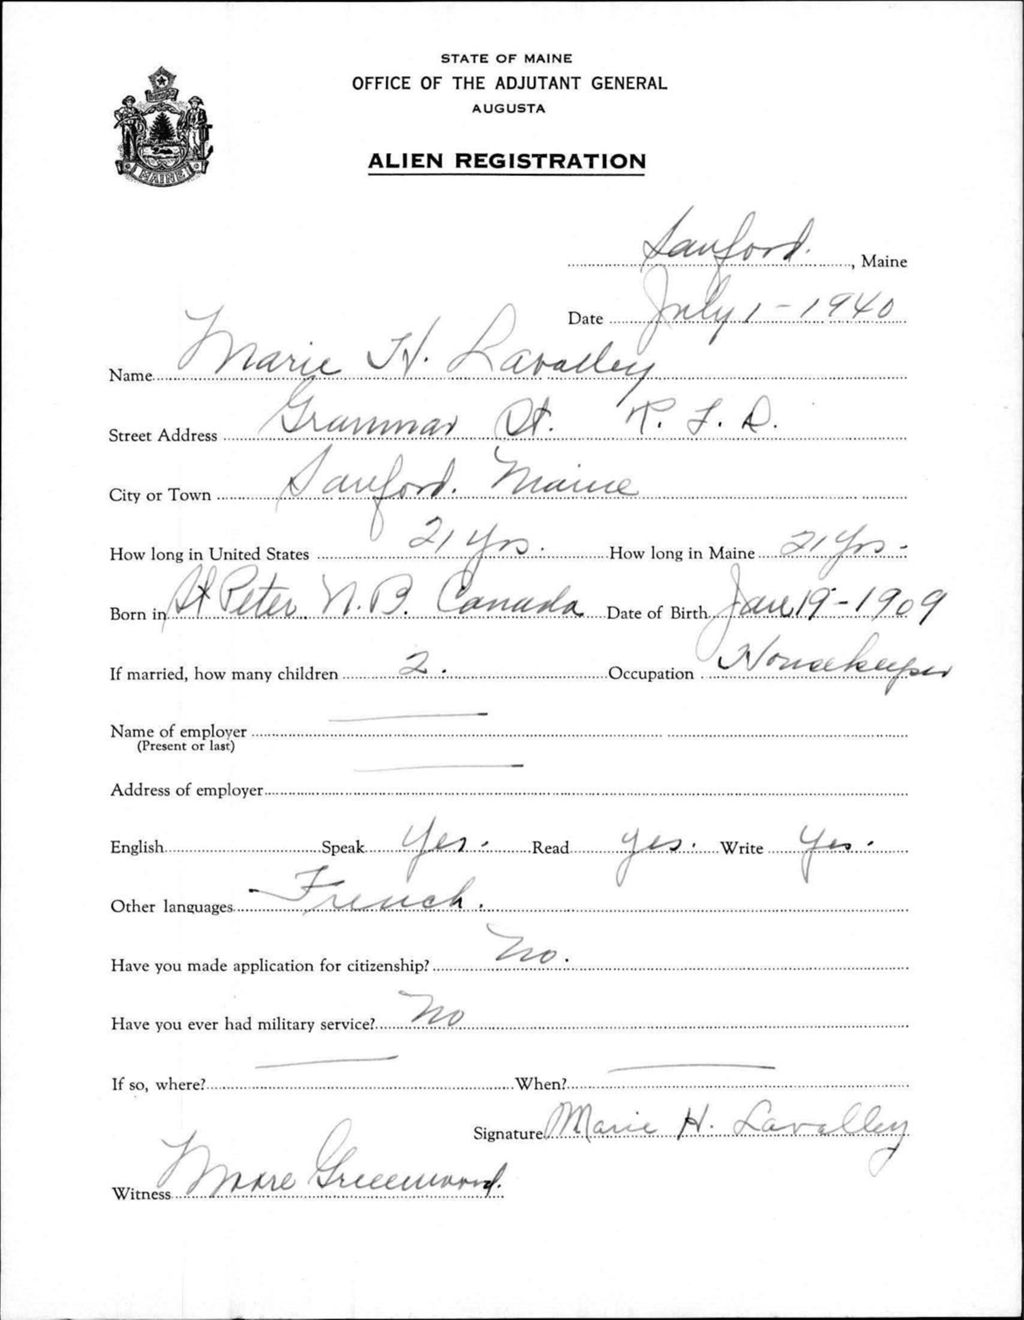 STATE OF MAINE
OFFICE OF THE ADJUTANT GENERAL
AUGUSTA
ALIEN REGISTRATION
MAINE
Sanford. , Maine
Date July 1 - 1940
Name Marie H. Lavalley
Street Address Grammar St. R. F. D.
City or Town Sanford. Maine
How long in United States 21 yrs. How long in Maine 21 yrs.
Born in St Peter. N. B. Canada Date of Birth Jan 19 - 1909
If married, how many children 2. Occupation Housekeeper
Name of employer
(Present or last)
Address of employer
English Speak yes. Read yes. Write yes.
Other languages French.
Have you made application for citizenship? No.
Have you ever had military service? No
If so, where? When?
Signature Marie H. Lavalley
Witness Greenwood.